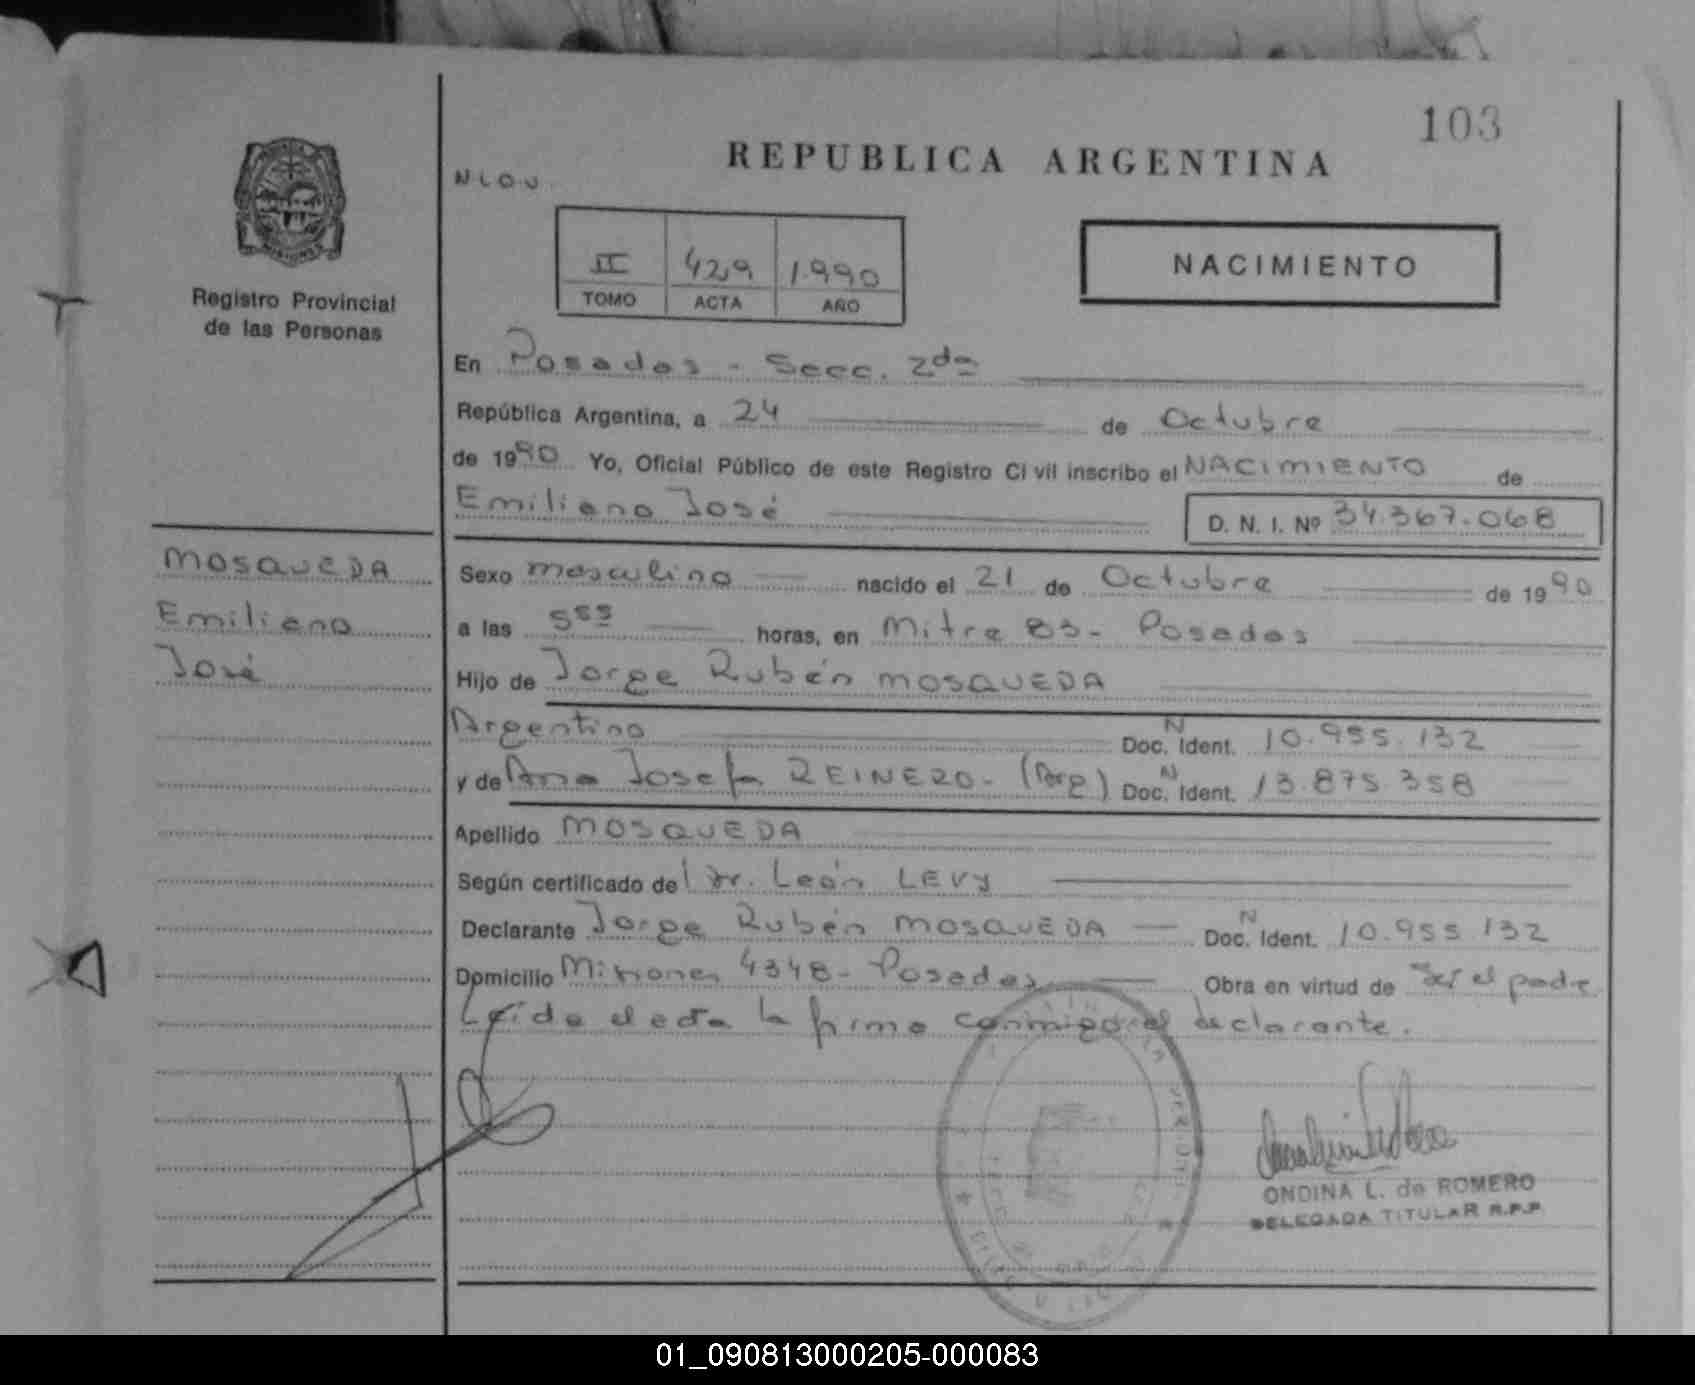 103
REPUBLICA ARGENTINA
Registro Provincial
de las Personas
II 429 1.990
TOMO ACTA AÑO
NACIMIENTO
En Posadas - Secc. 2da
República Argentina, a 24 de Octubre
de 1990 Yo, Oficial Público de este Registro Civil inscribo el NACIMIENTO de
Emiliano José D. N. I. Nº 34.367.068
MOSQUEDA
Emiliano
José
Sexo masculino nacido el 21 de Octubre de 1990
a las horas, en Mitre 83- Posadas
Hijo de Jorge Rubén MOSQUEDA
Argentino Doc. N Ident. 10.955.132
y de Ana Josefa REINERO- (Arg) Doc. N Ident. 13.875.358
Apellido MOSQUEDA
Según certificado del Dr. León LEVY
Declarante Jorge Rubén MOSQUEDA Doc. N Ident. 10.955.132
Domicilio Misiones 4348- Posadas Obra en virtud de ser el padre
Leída el acta la firma conmigo el declarante.
ONDINA L. de ROMERO
DELEGADA TITULAR R.P.P.
01_090813000205-000083